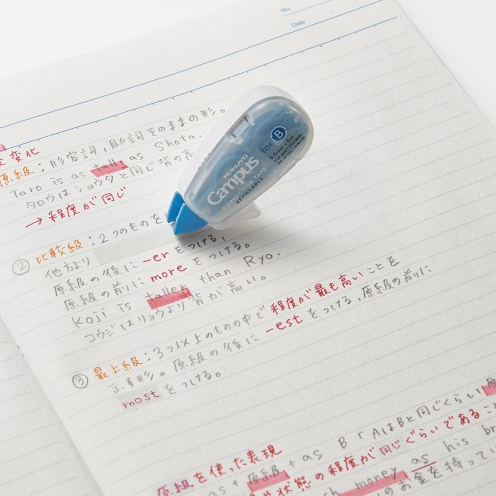 No.
Date
変化
原級：形容詞，副詞をそのままの形。
Taro is as tall as Shota.
タロウはショウタと同じ背の高
→ 程度が同じ
② 比較級：2つのものを
他方より
原級の後に -er をつける，
原級の前に more をつける。
Koji is taller than Ryo.
コウジはリョウより背が高い。
③ 最上級：3つ以上のものの中で程度が最も高いことを
示す形。原級の後に -est をつける，原級の前に
most をつける。
原級を使った表現
as + 原級 + as B 「AはBと同じぐらい
状態の程度が同じぐらいであるこ
much money as his br
お金を持ってい
KOKUYO
Campus
for B